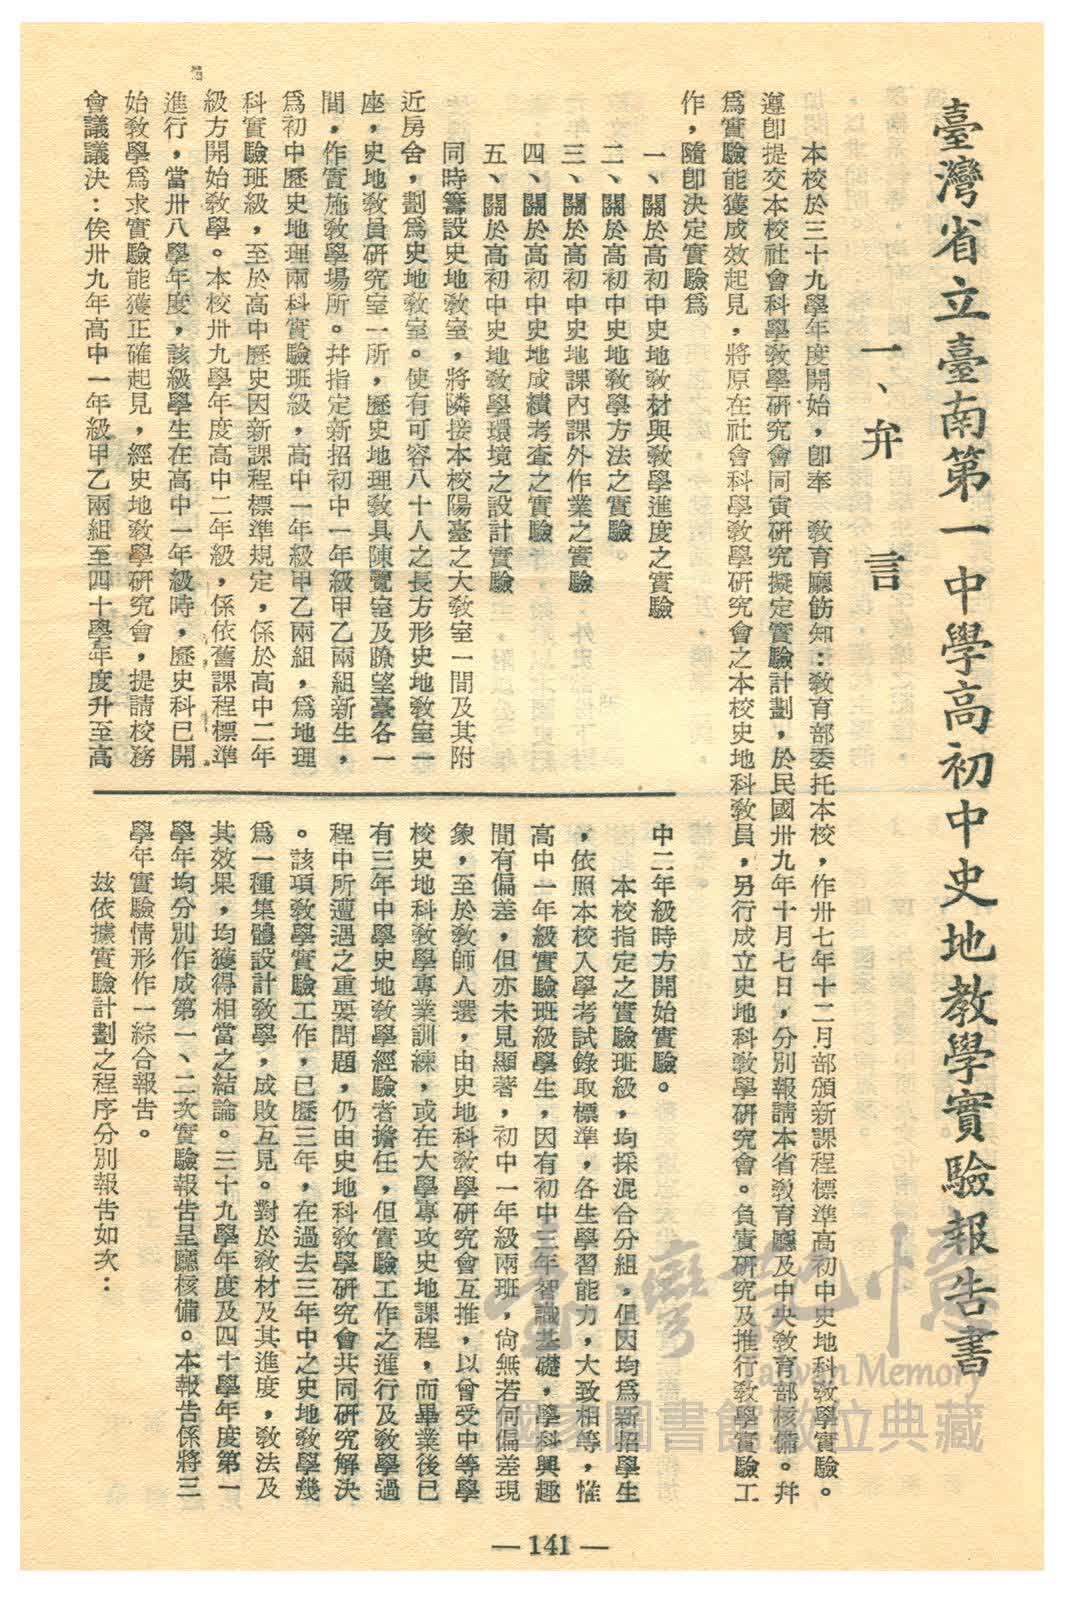 臺灣省立臺南第一中學高初中史地教學實驗報告書
一、弁言
本校於三十九學年度開始，卽奉　教育廳飭知：教育部委托本校，作卅七年十二月部頒新課程標準高初中史地科教學實驗。
遵卽提交本校社會科學教學研究會同寅研究擬定實驗計劃，於民國卅九年十月七日，分別報請本省教育廳及中央教育部核備。幷
爲實驗能獲成效起見，將原在社會科學教學研究會之本校史地科教員，另行成立史地科教學研究會。負責研究及推行教學實驗工
作，隨卽決定實驗爲
一、關於高初中史地教材與教學進度之實驗
二、關於高初中史地教學方法之實驗。
三、關於高初中史地課內課外作業之實驗
四、關於高初中史地成績考查之實驗
五、關於高初中史地教學環境之設計實驗
同時籌設史地教室，將隣接本校陽臺之大教室一間及其附
近房舍，劃爲史地教室。使有可容八十人之長方形史地教室一
座，史地教員研究室一所，歷史地理教具陳覽室及瞭望臺各一
間，作實施教學場所。幷指定新招初中一年級甲乙兩組新生，
爲初中歷史地理兩科實驗班級，高中一年級甲乙兩組，爲地理
科實驗班級，至於高中歷史因新課程標準規定，係於高中二年
級方開始教學。本校卅九學年度高中二年級，係依舊課程標準
進行，當卅八學年度，該級學生在高中一年級時，歷史科已開
始教學爲求實驗能獲正確起見，經史地教學研究會，提請校務
會議議決：俟卅九年高中一年級甲乙兩組至四十學年度升至高
中二年級時方開始實驗。
本校指定之實驗班級，均採混合分組，但因均爲新招學生
，依照本校入學考試錄取標準，各生學習能力，大致相等，惟
高中一年級實驗班級學生，因有初中三年智識基礎，學科興趣
間有偏差，但亦未見顯著，初中一年級兩班，尙無若何偏差現
象，至於教師人選，由史地科教學研究會互推，以曾受中等學
校史地科教學專業訓練，或在大學專攻史地課程，而畢業後已
有三年中學史地教學經驗者擔任，但實驗工作之進行及教學過
程中所遭遇之重要問題，仍由史地科教學研究會共同研究解決
。該項教學實驗工作，已歷三年，在過去三年中之史地教學幾
爲一種集體設計教學，成敗互見。對於教材及其進度，教法及
其效果，均獲得相當之結論。三十九學年度及四十學年度第一
學年均分別作成第一、二次實驗報告呈廳核備。本報告係將三
學年實驗情形作一綜合報告。
茲依據實驗計劃之程序分別報告如次：
臺灣記憶
Taiwan Memory
國家圖書館數位典藏
— 141 —